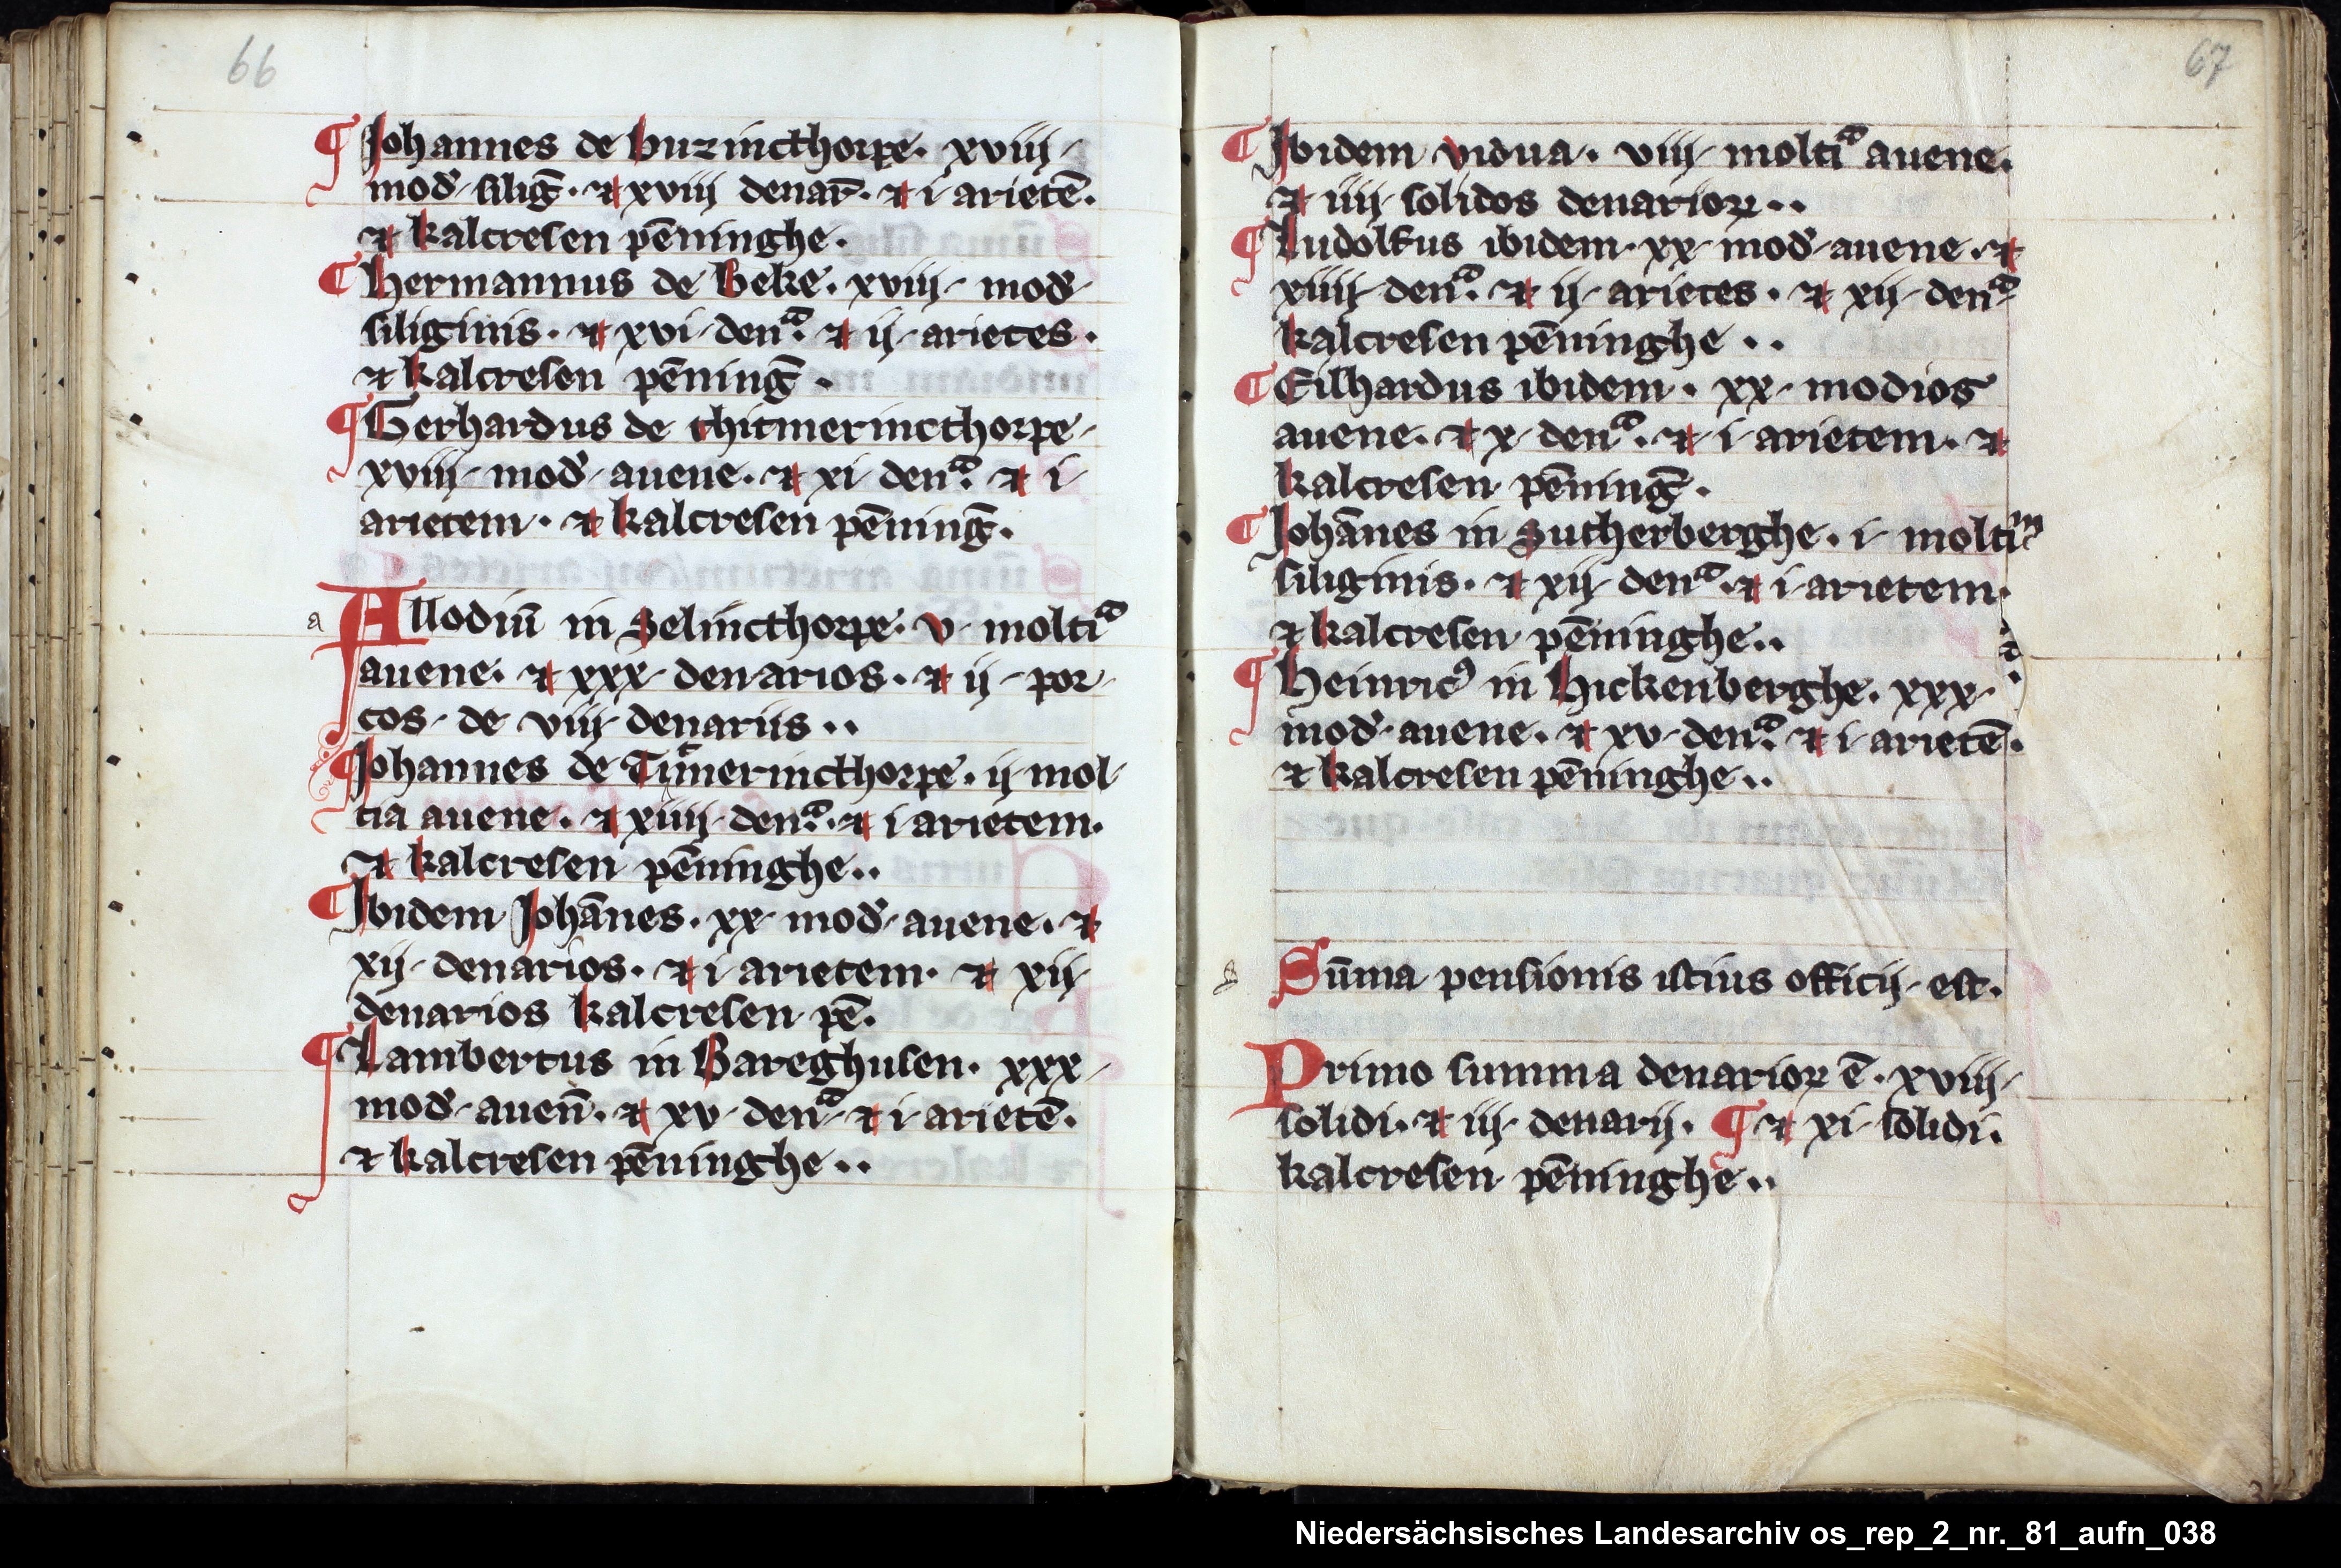 66
¶ Johannes de buzincthorpe. xviij
mod̕ siliḡ. et xviij denar̄. et i arietē.
et kalcresen pēninghe.
¶ Hermannus de Beke. xviij mod̕
siliginis. et xvi denᷓ. et ij arietes.
et kalcresen pēninḡ.
¶ Gerhardus de thitmerincthorpe
xviij mod̕ auene. et xi denᷓ. et i
arietem. et kalcresen pēninḡ.
a Allodiū in Selincthorpe. v moltiᷓ
auene. et xxx denarios. et ij por
cos de viij denariis..
¶ Johannes de Timerincthorpe. ij mol
tia auene. et xiiij denᷓ. et i arietem.
et kalcresen pēninghe..
¶ Ibidem Johānes. xx mod̕ auene. et
xij denarios. et i arietem. et xij
denarios kalcresen pē.
¶ Lambertus in Bareghusen. xxx
mod̕ auen̄. et xv denᷓ et i arietē.
et kalcresen pēninghe..
67
¶ Ibidem vidua. viij moltiᷓ auene.
et iiij solidos denarioꝝ..
¶ Ludolfus ibidem. xx mod̕ auene. et
xiiij denᷓ. et ij arietes. et xij denᷓ
kalcresen pēninghe..
¶ Eilhardus ibidem. xx modios
auene. et x denᷓ. et i arietem. et
kalcresen pēninḡ.
¶ Johānes in Sutherberghe. i moltiᵐ
siliginis. et xij denᷓ. et i arietem.
et kalcresen pēninghe..
¶ Heinricꝰ in Hickenberghe. xxx
mod̕ auene. et xv denᷓ. et i arietē.
et kalcresen pēninghe..
s Sūma pensionis istius officij est.
Primo summa denarioꝝ ē. xviij
solidi. et iij denarij. ¶ et xi solidi.
kalcresen pēninghe..
Niedersächsisches Landesarchiv os_rep_2_nr._81_aufn_038